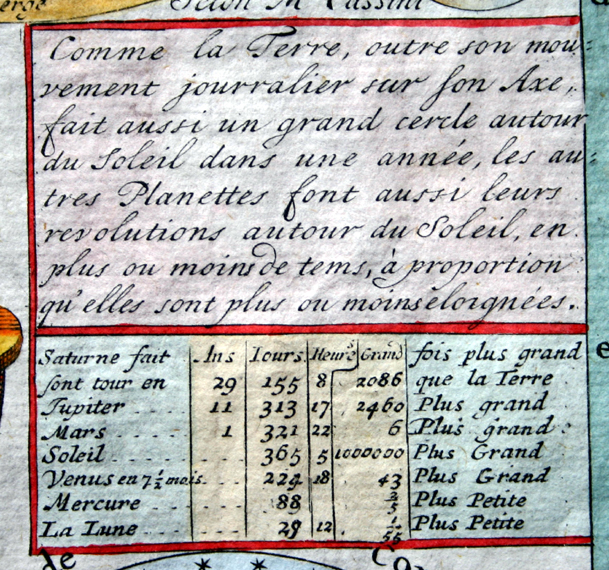 Selon M Cassini
Comme la Terre, outre son mou-
vement journalier sur son Axe,
fait aussi un grand cercle autour
du Soleil dans une année, les au-
tres Planettes font aussi leurs
revolutions autour du Soleil, en
plus ou moins de tems, à proportion
qu'elles sont plus ou moins éloignées.
Saturne fait Ans Iours Heurs Grand fois plus grand
sont tour en 29 155 8 2086 que la Terre
Jupiter 11 313 17 2460 Plus grand
Mars 1 321 22 6 Plus grand
Soleil 365 5 1000000 Plus Grand
Venus en 7 1/2 mois 224 18 43 Plus Grand
Mercure 88 2/5 Plus Petite
La Lune 29 12 1/55 Plus Petite
de